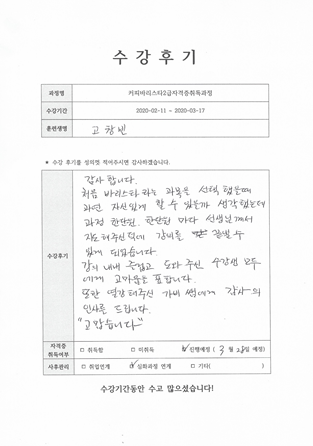 수강후기
과정명 커피바리스타2급자격증취득과정
수강기간 2020-02-11 ~ 2020-03-17
훈련생명 고창빈
* 수강 후기를 성의껏 적어주시면 감사하겠습니다.
수강후기
감사합니다.
처음 바리스타 라는 과목을 선택 했는데
과연 자신있게 할 수 있을까 생각했는데
과정 한단원, 한단원 마다 선생님께서
지도해주신 덕에 강의를 수
있게 되었습니다.
강의 내내 즐겁고 도와 주신 수강생 모두
에게 고마움을 표합니다.
또한 열강해주신 쌤에게 감사의
인사를 드립니다.
"고맙습니다"
자격증
취득여부 □ 취득함 □ 미취득 ☑ 진행예정 ( 3 월 28일 예정)
사후관리 □ 취업연계 ☑ 심화과정 연계 □ 기타( )
수강기간동안 수고 많으셨습니다!